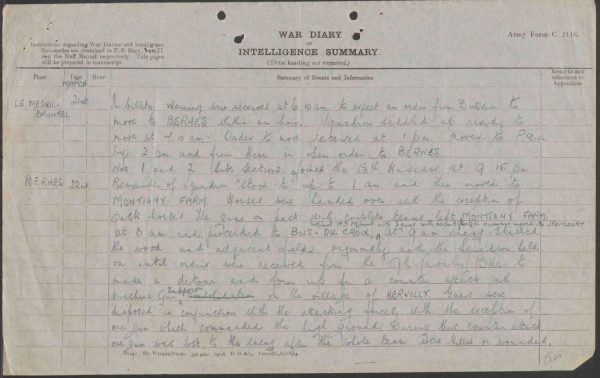 WAR DIARY
or
INTELLIGENCE SUMMARY.
(Erase heading not required.)
Army Form C. 2118.
Instructions regarding War Diaries and Intelligence
Summaries are contained in F. S. Regs., Part II.
and the Staff Manual respectively. Title pages
will be prepared in manuscript.
Place Date Hour Summary of Events and Information Remarks and references to Appendices
MARCH
LE MESNIL-BRUNTEL 21st In billets. Warning was received at 6.10 am to expect an order from Division to
move to BERNES within an hour. Squadron saddled up ready to
move at 7.10 am. Order to move received at 1 pm. Moved to
2 am and from there on order to BERNES.
Nos. 1 and 2 Sub sections joined the 15th Hussars at 9.15 pm.
BERNES 22nd Remainder of squadron "stood to" up to 1 am and then moved to
MONTIGNY FARM. Horses were handed over with the exception of
pack horses. The guns on pack with complete teams left MONTIGNY FARM
at 3 am and proceeded to BOIS-DU-CROIX, at 9 am enemy shelled
the wood and adjacent fields vigorously and the squadron held
on until orders were received from the 9th Cavalry Bde. to
make a detour and form up for a counter attack with
machine Gun support on the village of HERVILLY. Guns were
disposed in conjunction with the attacking forces, with the exception of
one gun which commanded the high ground. During this counter attack
one gun was lost to the enemy after the whole team were killed or wounded.